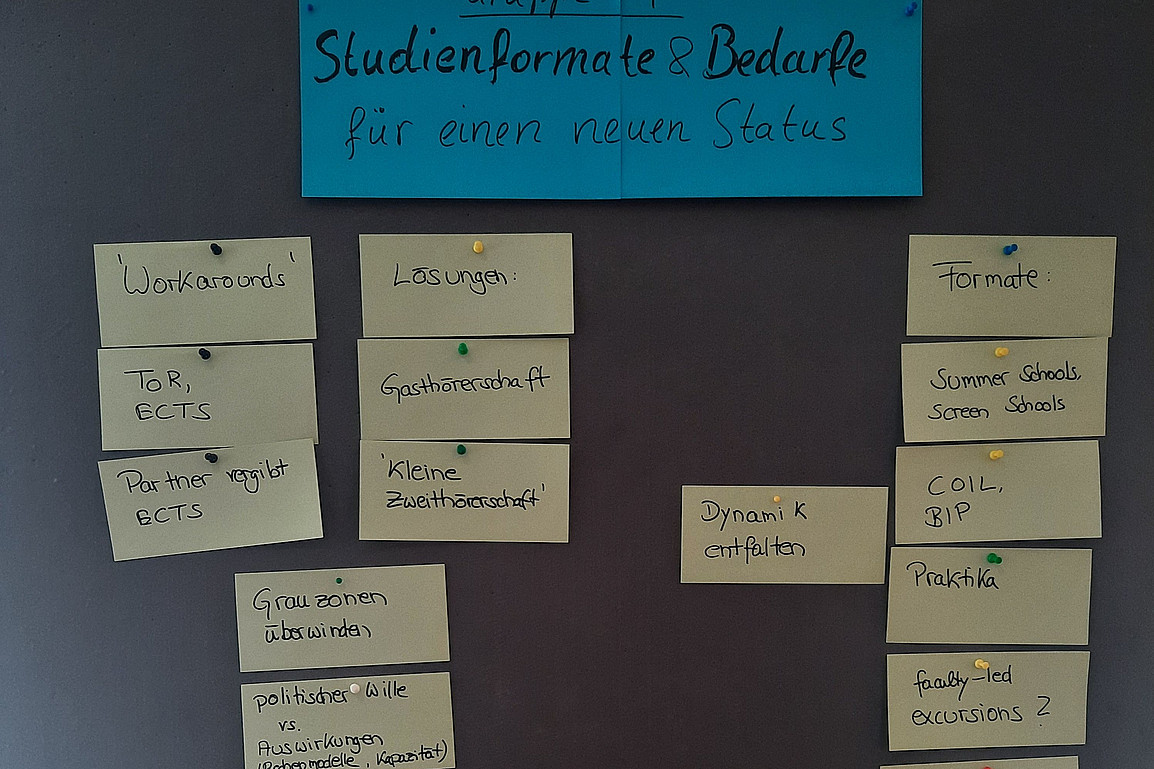 Studienformate & Bedarfe
für einen neuen Status
'Workarounds'
ToR,
ECTS
Partner vergibt
ECTS
Lösungen:
Gasthörerschaft
'Kleine
Zweithörerschaft'
Grauzonen
überwinden
politischer Wille
vs.
Auswirkungen
Kapazität)
Dynamik
entfalten
Formate:
Summer Schools,
Screen Schools
COIL,
BIP
Praktika
faculty-led
excursions ?